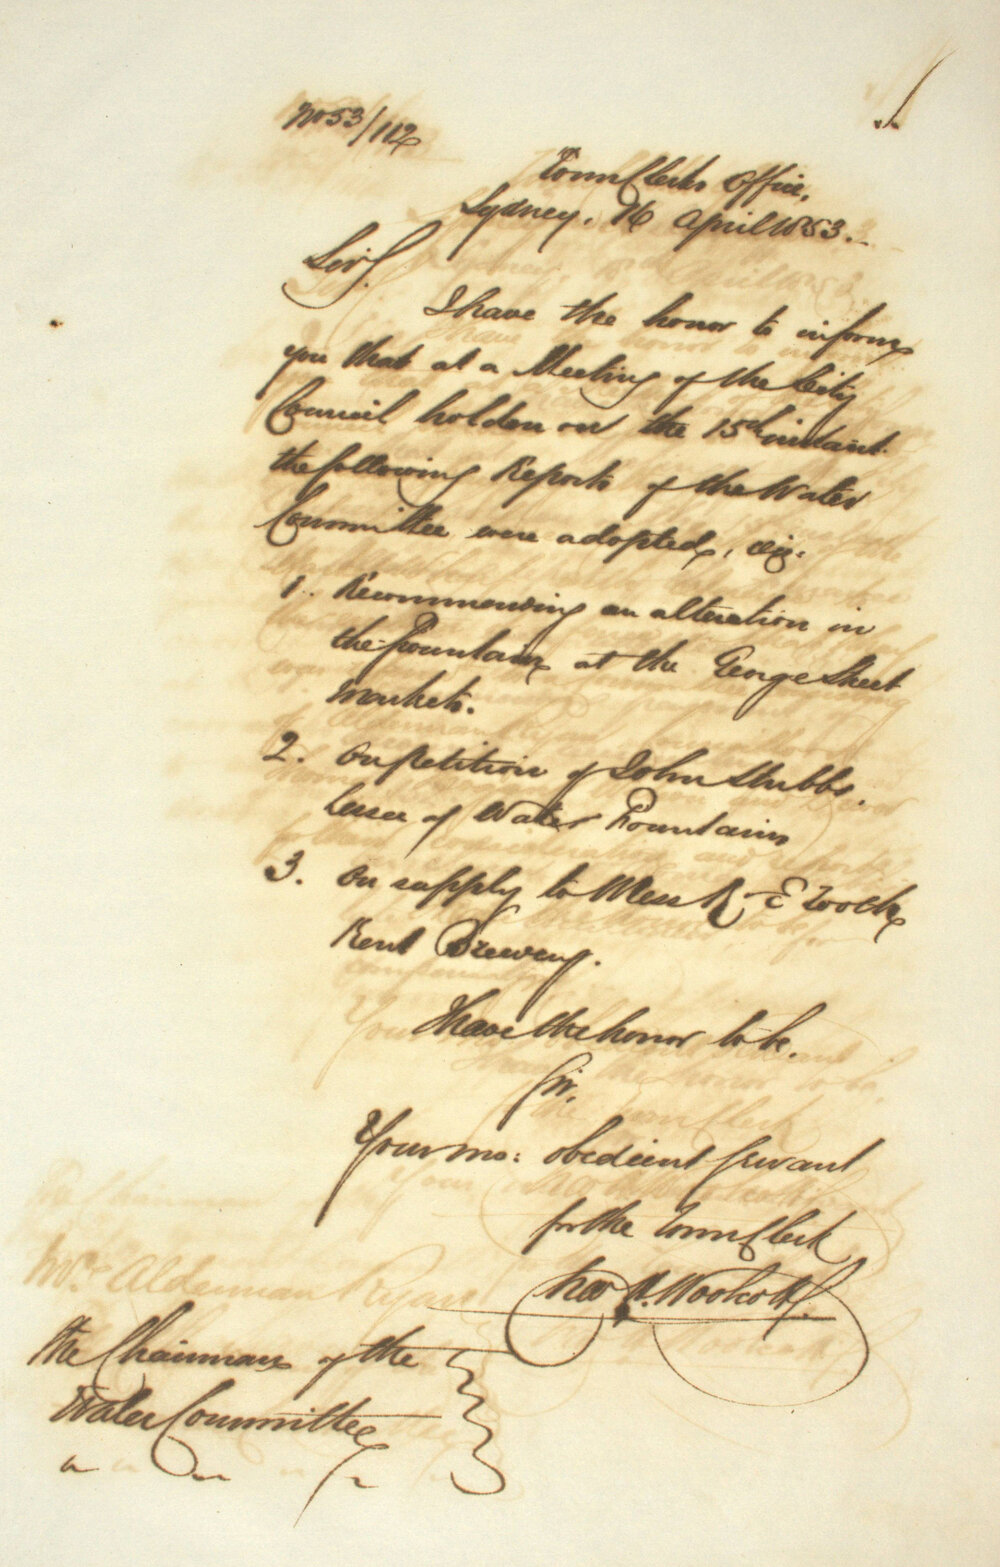 No 53/112
Town Clerks Office,
Sydney, 16 April 1853.
Sir,
I have the honor to inform
you that at a Meeting of the City
Council holden on the 15th instant
the following Reports of the Water
Committee were adopted, viz:
1. Recommending an alteration in
the Fountain at the George Street
Markets.
2. On petition of John Stubbs.
Lessee of Water Fountains
3. On supply to Mess R & E Tooth
Kent Brewery.
I have the honor to be.
Sir,
Your mo: obedient Servant
for the Town Clerk
Woolcott
The Chairman of the
Water Committee